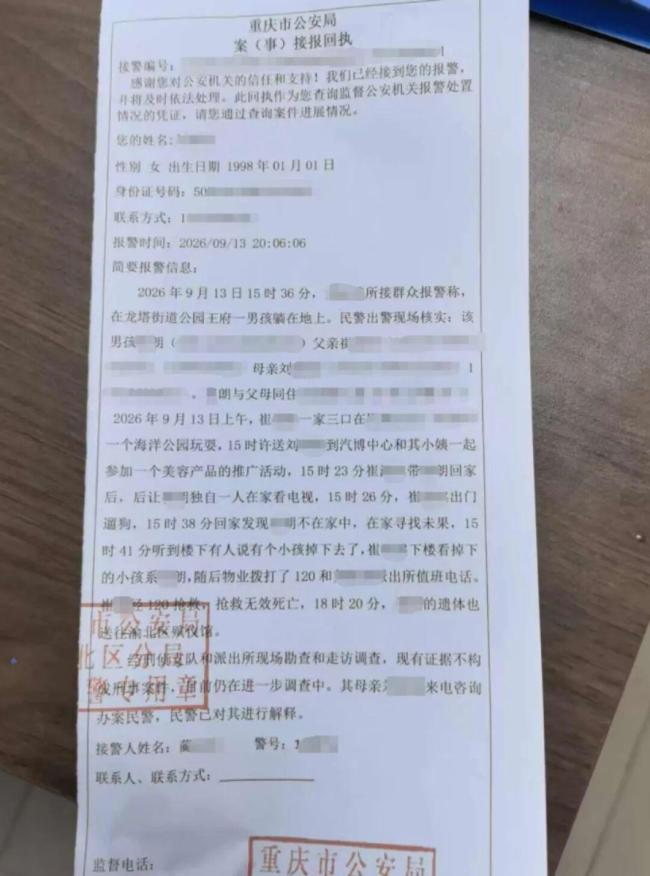 重庆市公安局
案（事）接报回执
接警编号：
感谢您对公安机关的信任和支持！我们已经接到您的报警，
并将及时依法处理。此回执作为您查询监督公安机关报警处置
情况的凭证，请您通过查询案件进展情况。
您的姓名：
性别 女 出生日期 1998 年 01 月 01 日
身份证号码：50
联系方式：1
报警时间：2026/09/13 20:06:06
简要报警信息：
2026 年 9 月 13 日 15 时 36 分，所接群众报警称，
在龙塔街道公园王府一男孩躺在地上。民警出警现场核实：该
男孩 朗（ ）父亲崔
母亲刘 1
。 朗与父母同住
2026 年 9 月 13 日上午，崔 一家三口在
一个海洋公园玩耍，15 时许送刘 到汽博中心和其小姨一起
参加一个美容产品的推广活动，15 时 23 分崔 带 朗回家
后，后让 朗独自一人在家看电视，15 时 26 分，崔 出门
遛狗，15 时 38 分回家发现 朗不在家中，在家寻找未果，15
时 41 分听到楼下有人说有个小孩掉下去了，崔 下楼看掉下
的小孩系 朗，随后物业拨打了 120 和 派出所值班电话。
崔 经 120 抢救，抢救无效死亡，18 时 20 分， 的遗体也
送往渝北区殡仪馆。
经刑侦支队和派出所现场勘查和走访调查，现有证据不构
成刑事案件，目前仍在进一步调查中。其母亲 来电咨询
办案民警，民警已对其进行解释。
市公安局
北区分局
警专用章
接警人姓名： 警号：
联系人、联系方式：
监督电话：
重庆市公安局